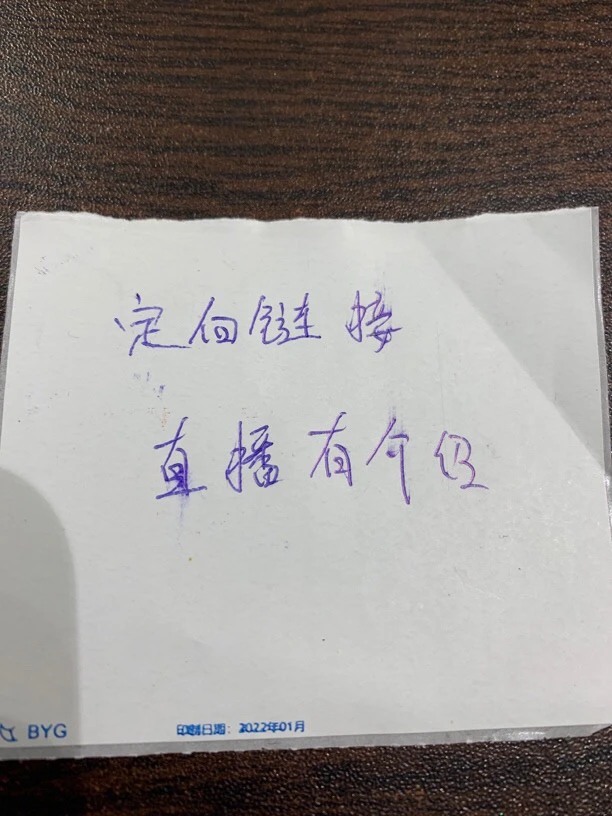 定向链接
直播有个仅
BYG
印制日期：2022年01月